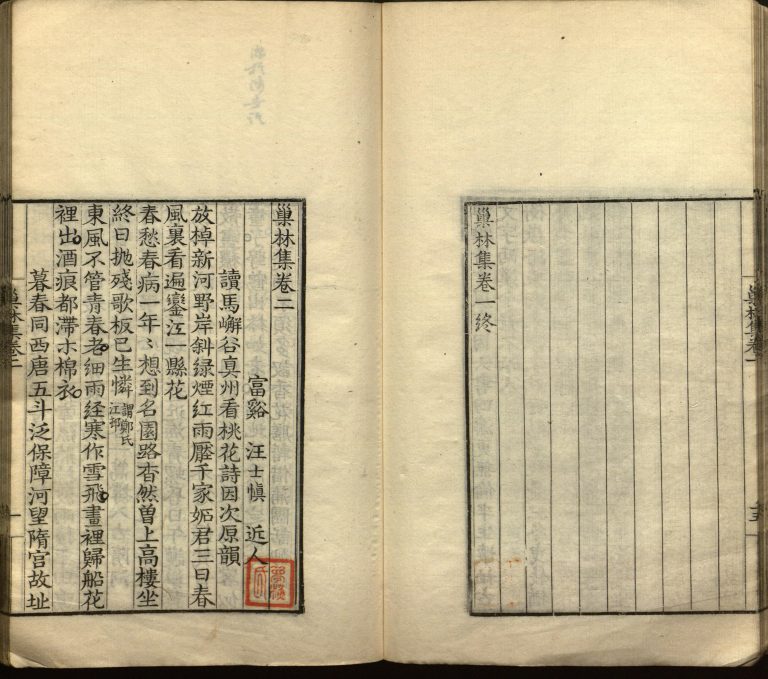 巢林集卷一終
巢林集卷二
富谿　汪士慎　近人
讀馬嶰谷真州看桃花詩因次原韻
放棹新河野岸斜绿煙红雨壓千家妬君三日春
風裏看遍鑾江一縣花
春愁春病一年〻想到名園路杳然曽上高樓坐
終日抛殘歌板已生憐謂鄭氏江邨
東風不管青春老细雨经寒作雪飛畫裡歸船花
裡出酒痕都滯木棉衣
暮春同西唐五斗泛保障河望隋宫故址
巢林集卷二
一